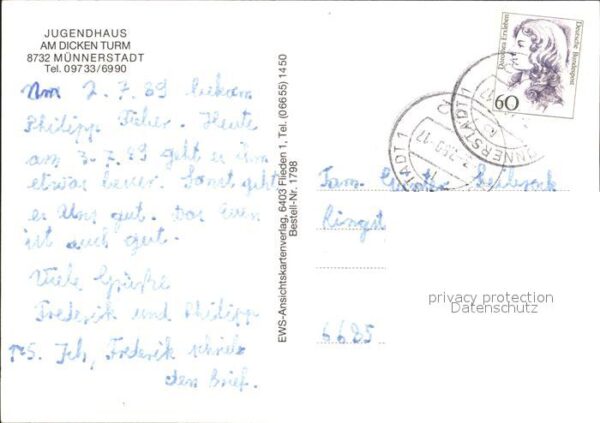 JUGENDHAUS
AM DICKEN TURM
8732 MÜNNERSTADT
Tel. 09733/6990
Am 2.7.89 bekam
Philipp Fieber. Heute
am 3.7.89 geht es ihm
etwas besser. Sonst geht
es uns gut. Das Essen
ist auch gut.
Viele Grüße
Frederik und Philipp
PS. Ich, Frederik schrieb
den Brief.
EWS-Ansichtskartenverlag, 6403 Flieden 1, Tel. (06655) 1450
Bestell-Nr. 1798
Dorothea Erxleben
Deutsche Bundespost
60
MÜNNERSTADT 1
Fam. Günther
Ringst
privacy protection
Datenschutz
6685